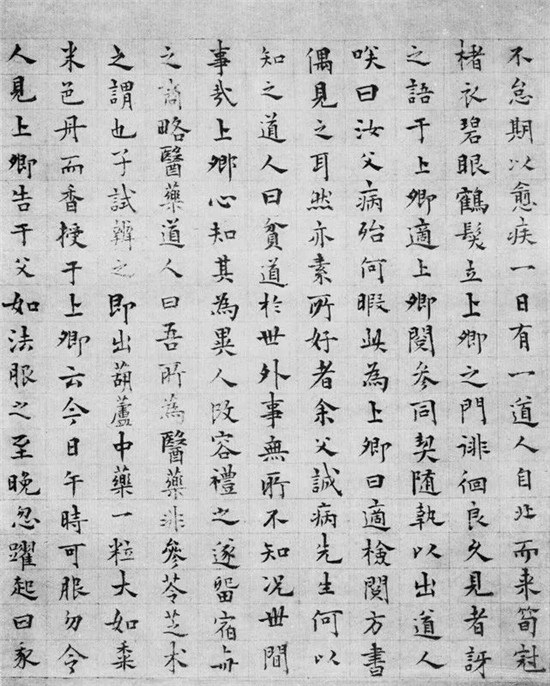 不怠期以愈疾一日有一道人自北而来筍冠
楮衣碧眼鶴髮立上卿之門徘徊良久見者訝
之語于上卿適上卿閱參同契随執以出道人
咲曰汝父病殆何暇此為上卿曰適檢閱方書
偶見之耳然亦素所好者余父誠病先生何以
知之道人曰貧道於世外事無所不知况世間
事哉上卿心知其為異人改容禮之遂留宿与
之商略醫藥道人曰吾所為醫藥非參苓芝术
之謂也子試辯之即出葫蘆中藥一粒大如黍
米色丹而香授于上卿云今日午時可服勿令
人見上卿告于父如法服之至晚忽躍起曰家